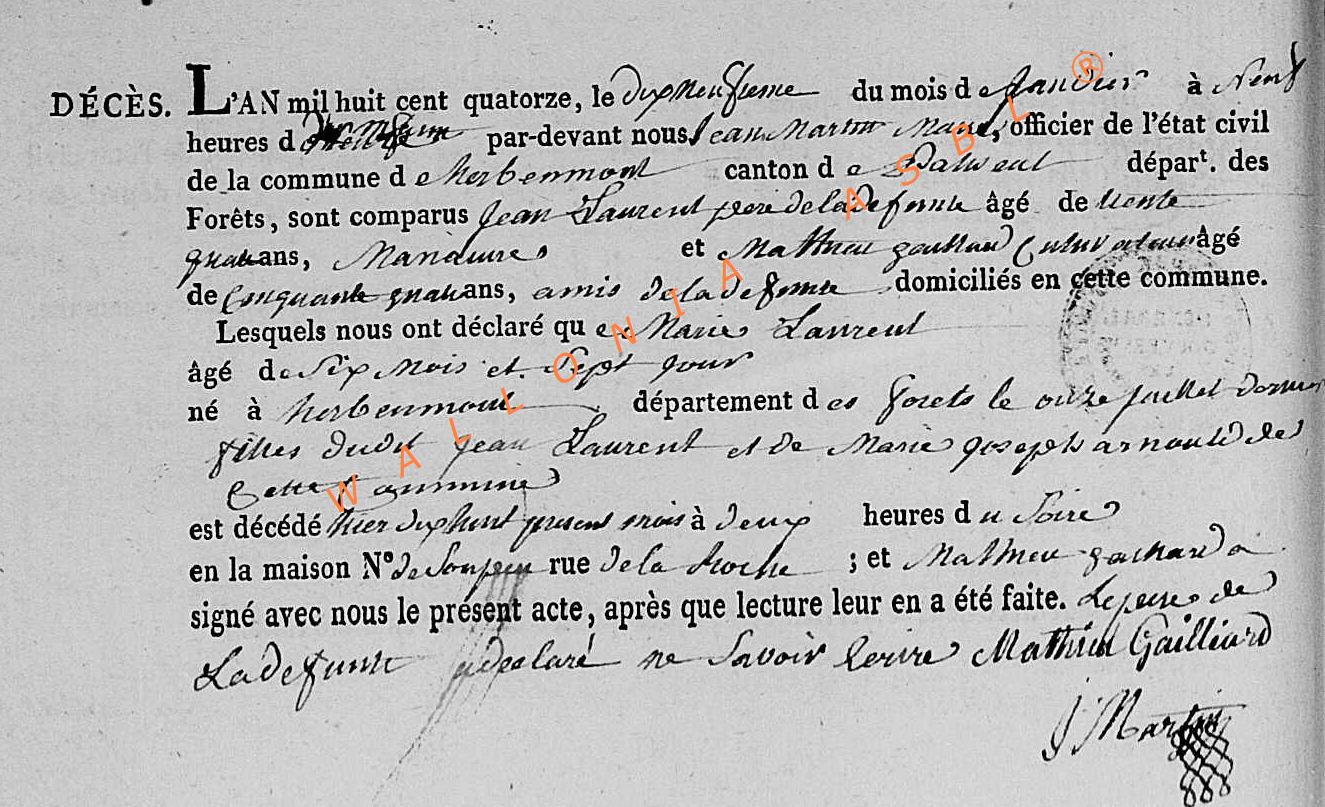 DÉCÈS. L'AN mil huit cent quatorze, le dixneufieme du mois de Janvier à Neuf
heures d par-devant nous Jean Martin Maire, officier de l'état civil
de la commune d e herbeumont canton d e Paliseul départ. des
Forêts, sont comparus Jean Laurent pere de la defunte âgé de trente
quatre ans, Manœuvre et Mathieu gaillard Cultivateur âgé
de Cinquante quatre ans, amis de la defunte domiciliés en cette commune.
Lesquels nous ont déclaré qu e Marie Laurent
âgé de Six Mois et Sept jour
né à herbeumont département des forets le onze juillet dernier
filles dudit Jean Laurent et de Marie joseph arnould de
Cette Commune
est décédé hier dixhuit present mois à deux heures du Soire
en la maison N° de Son pere rue de la Roche ; et Mathieu gaillard a
signé avec nous le présent acte, après que lecture leur en a été faite. Le pere de
La defunte a declaré ne Savoir Ecrire Mathieu Gailliard
J Martin
WALLONIA ASBL ®